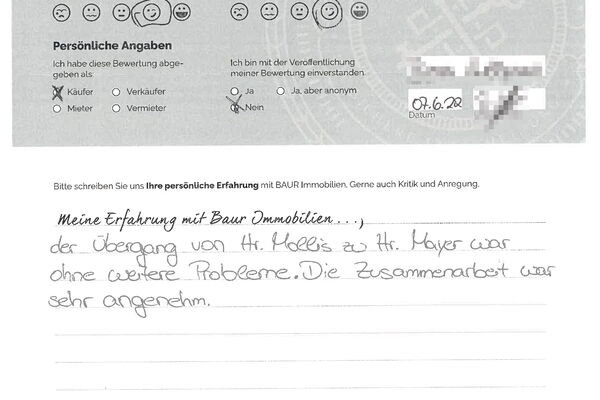 Persönliche Angaben
Ich habe diese Bewertung abge-
geben als:
Käufer Verkäufer
Mieter Vermieter
Ich bin mit der Veröffentlichung
meiner Bewertung einverstanden.
Ja Ja, aber anonym
Nein
07.6.22
Datum
Bitte schreiben Sie uns Ihre persönliche Erfahrung mit BAUR Immobilien, Gerne auch Kritik und Anregung.
Meine Erfahrung mit Baur Immobilien...,
der Übergang von Hr. Mollis zu Hr. Mayer war
ohne weitere Probleme. Die Zusammenarbeit war
sehr angenehm.